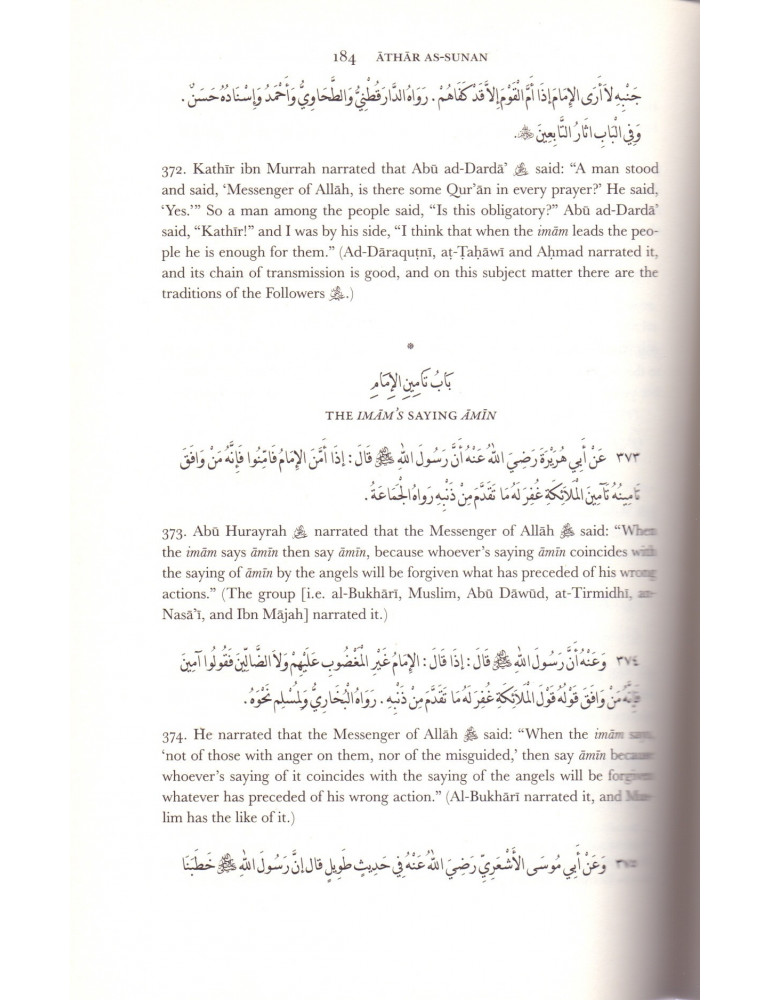 184 ĀTHĀR AS-SUNAN
جَنْبِهِ لاَ أَرَى الإِمَامَ إِذَا أَمَّ الْقَوْمَ إِلاَّ قَدْ كَفَاهُمْ . رَوَاهُ الدَّارَقُطْنِيُّ وَالطَّحَاوِيُّ وَأَحْمَدُ وَإِسْنَادُهُ حَسَنٌ .
وَفِي الْبَابِ اثَارُ التَّابِعِينَ ۞.
372. Kathīr ibn Murrah narrated that Abū ad-Dardā’ said: “A man stood
and said, ‘Messenger of Allāh, is there some Qur’ān in every prayer?’ He said,
‘Yes.’” So a man among the people said, “Is this obligatory?” Abū ad-Dardā’
said, “Kathīr!” and I was by his side, “I think that when the imām leads the peo-
ple he is enough for them.” (Ad-Dāraquṭnī, aṭ-Ṭaḥāwī and Aḥmad narrated it,
and its chain of transmission is good, and on this subject matter there are the
traditions of the Followers .)
*
بَابُ تَامِينِ الإِمَامِ
THE IMĀM’S SAYING ĀMĪN
٣٧٣ عَنْ أَبِي هُرَيْرَةَ رَضِيَ اللهُ عَنْهُ أَنَّ رَسُولَ اللهِ ﷺ قَالَ : إِذَا أَمَّنَ الإِمَامُ فَامِّنُوا فَإِنَّهُ مَنْ وَافَقَ
تَامِينُهُ تَآمِينَ الْمَلاَئِكَةِ غُفِرَ لَهُ مَا تَقَدَّمَ مِنْ ذَنْبِهِ رَوَاهُ الْجَمَاعَةُ .
373. Abū Hurayrah narrated that the Messenger of Allāh ﷺ said: “When
the imām says āmīn then say āmīn, because whoever’s saying āmīn coincides with
the saying of āmīn by the angels will be forgiven what has preceded of his wrong
actions.” (The group [i.e. al-Bukhārī, Muslim, Abū Dāwūd, at-Tirmidhī, an-
Nasā’ī, and Ibn Mājah] narrated it.)
٣٧٤ وَعَنْهُ أَنَّ رَسُولَ اللهِ ﷺ قَالَ : إِذَا قَالَ : الإِمَامُ غَيْرِ الْمَغْضُوبِ عَلَيْهِمْ وَلاَ الضَّالِّينَ فَقُولُوا آمِينَ
فَإِنَّهُ مَنْ وَافَقَ قَوْلُهُ قَوْلَ الْمَلاَئِكَةِ غُفِرَ لَهُ مَا تَقَدَّمَ مِنْ ذَنْبِهِ . رَوَاهُ الْبُخَارِيُّ وَلِمُسْلِمٍ نَحْوَهُ .
374. He narrated that the Messenger of Allāh ﷺ said: “When the imām says,
‘not of those with anger on them, nor of the misguided,’ then say āmīn because
whoever’s saying of it coincides with the saying of the angels will be forgiven
whatever has preceded of his wrong action.” (Al-Bukhārī narrated it, and Mus-
lim has the like of it.)
٣٧٥ وَعَنْ أَبِي مُوسَى الأَشْعَرِيِّ رَضِيَ اللهُ عَنْهُ فِي حَدِيثٍ طَوِيلٍ قَالَ إِنَّ رَسُولَ اللهِ ﷺ خَطَبَنَا